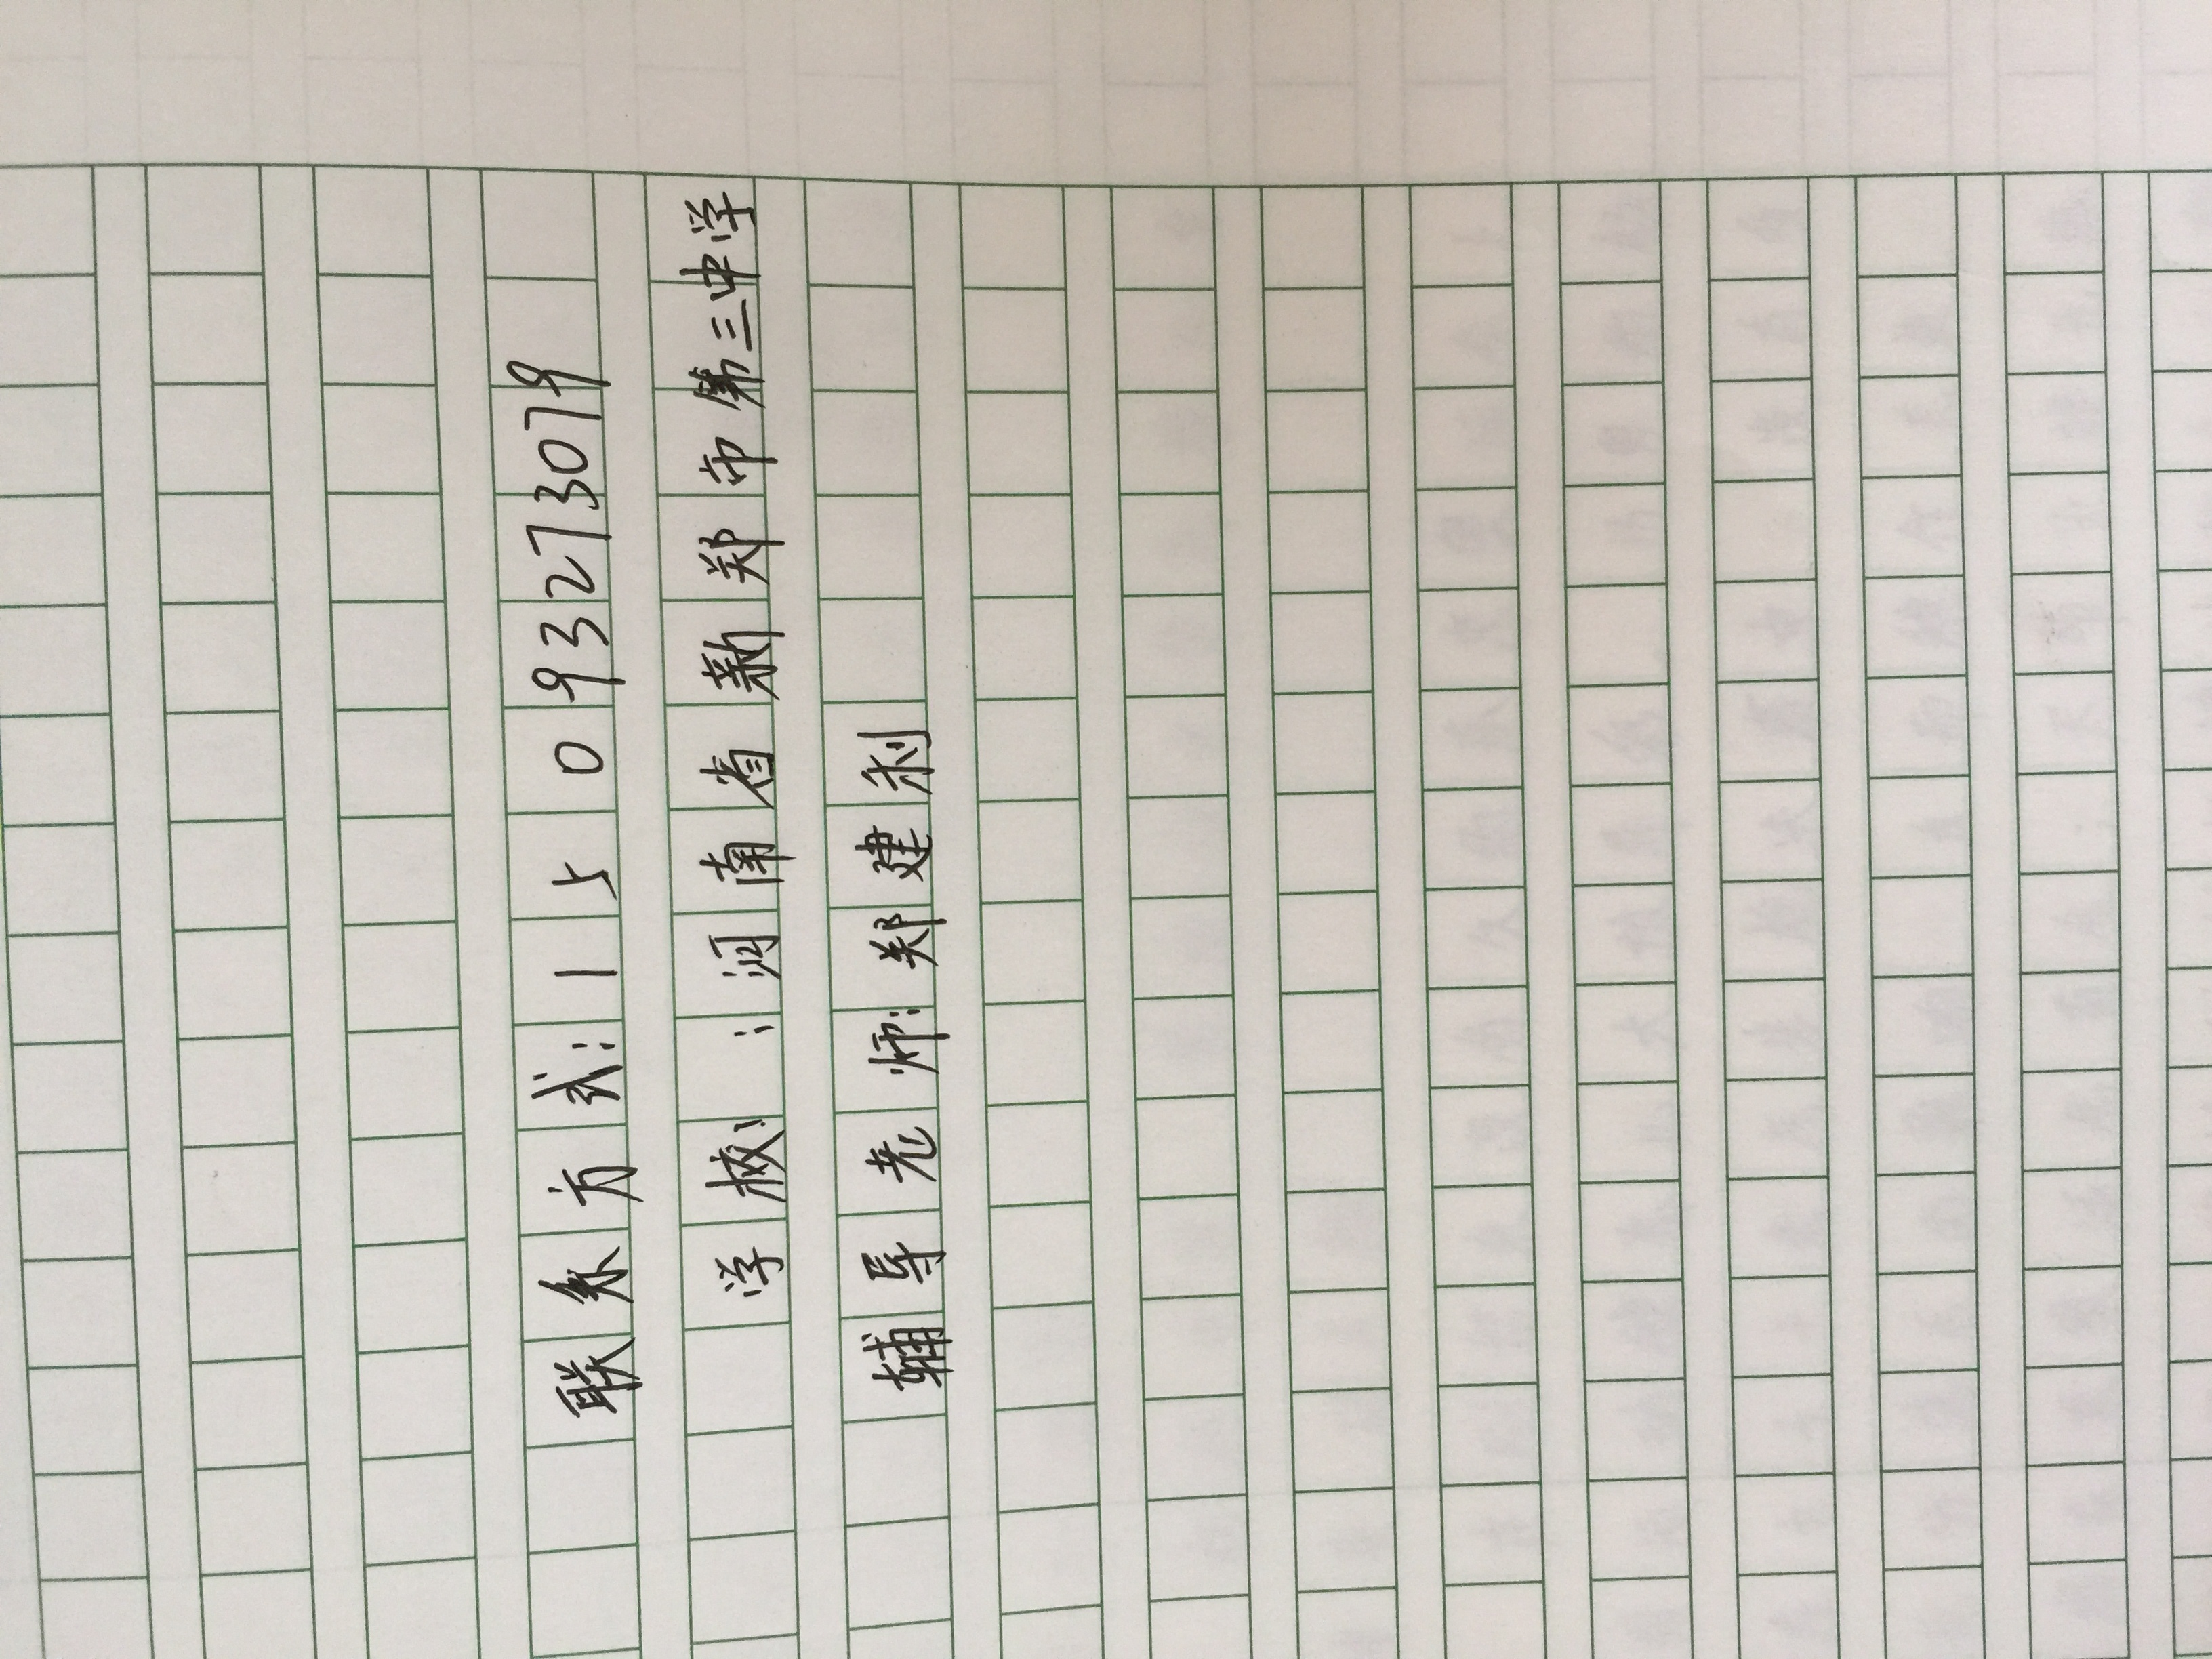 联系方式:15093273079
学校:河南省新郑市第三中学
辅导老师:郑建利